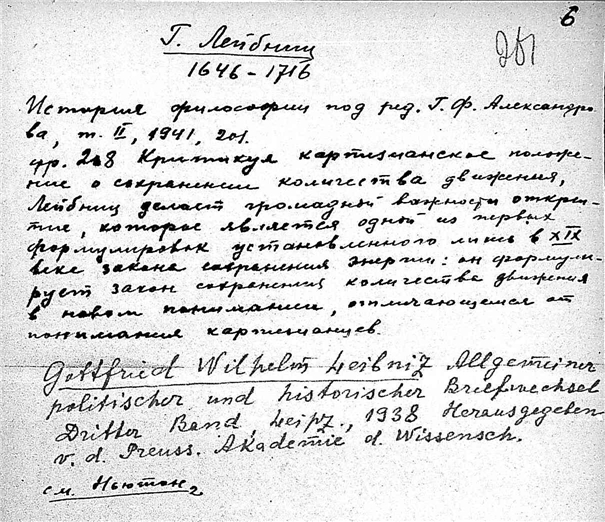 6
201
Г. Лейбниц
1646 – 1716
История философии под ред. Г. Ф. Александро-
ва, т. II, 1941, 201.
стр. 208 Критикуя картизианское положе-
ние о сохранении количества движения,
Лейбниц делает громадной важности откры-
тие, которое является одной из первых
формулировок установленного лишь в XIX
веке закона сохранения энергии: он формули-
рует закон сохранения количества движения
в новом понимании, отличающемся от
понимания картизианцев.
Gottfried Wilhelm Leibniz Allgemeiner
politischer und historischer Briefwechsel
Dritter Band, Leipz., 1938 Herausgegeben
v. d. Preuss. Akademie d. Wissensch.
см. Ньютон 2